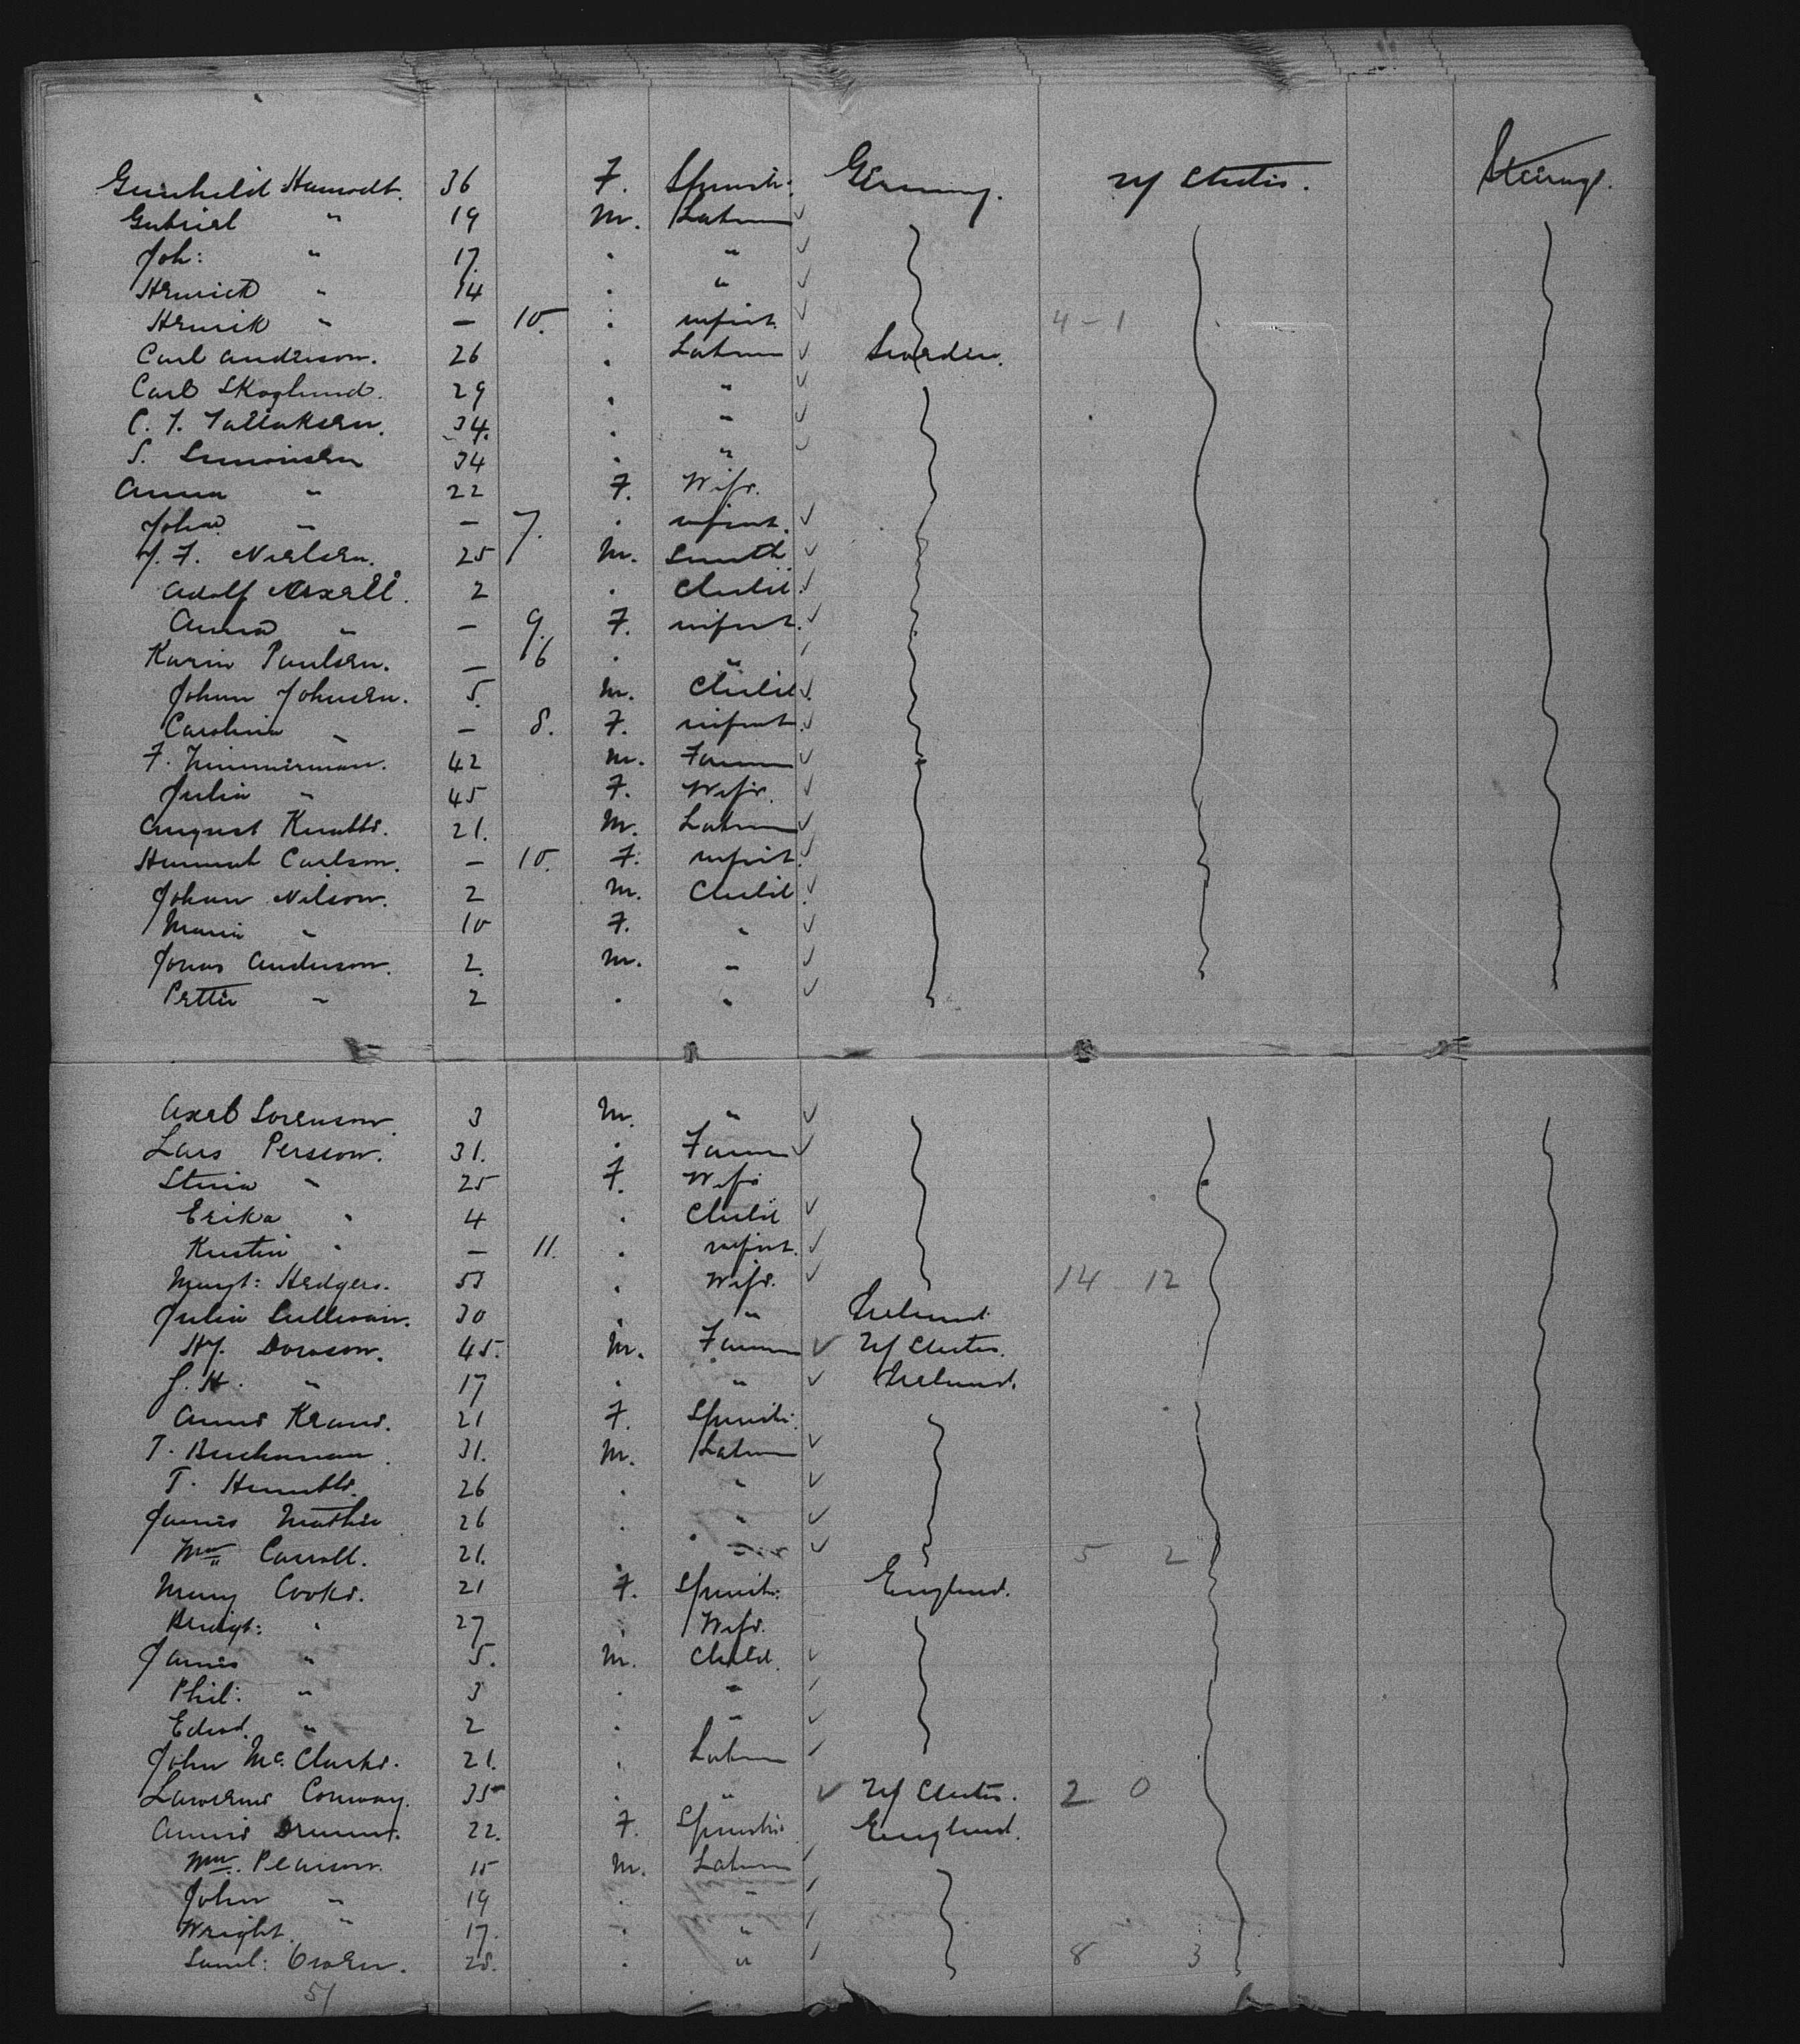 Gunhild Hamodt. 36 F. Spinstr: Germany. U/ States. Steerage.
Gabriel " 19 M. Labour
Joh: " 17 . "
Henrick " 14 . "
Henrik " — 10. . infant 4 - 1
Carl Anderson. 26 . Labour Sweden.
Carl Skoglund. 29 . "
C. J. Tallaksen. 34. . "
S. Simonsen 34 . "
Anna " 22 F. Wife.
Johan " — 7. . infant.
J. F. Nielsen. 25 M. Smith
Adolf Axell. 2 . Child.
Anna " — 9. F. infant.
Karin Paulsen. — 6 . "
Johan Johnsen. 5. M. Child.
Carolina " — 8. F. infant.
F. Zimmerman. 42 M. Farmer
Julia " 45 F. Wife.
August 21. M. Labour
Hannah Carlson. — 10. F. infant.
Johan Nilson. 2 M. Child.
Maria " 10 F. "
Jonas Anderson. 2. M. "
Petter " 2 . "
Axel Sorenson. 3 M. "
Lars Persson. 31. . Farmer
Stina " 25 F. Wife
Erika " 4 . Child
Kristin " — 11. . infant.
Margt: Hedgers. 55 . Wife. 14 12
Julia Sullivan. 30 . " Ireland.
Hy. Dowson. 45. M. Farmer U/ States.
J. H. " 17 . " Ireland.
Annie 21 F. Spinstr:
T. Buchanan. 31. M. Labour
T. 26 . "
James Mather 26 . "
Wm Carroll. 21. . " 5 2
Mary Cooke. 21 F. Spinstr: England.
Bridgt: " 27 . Wife.
James " 5. M. Child.
Phil: " 3 . "
Edwd. " 2 . "
John McClarke. 21. . Labour
Lawrence Conway. 35 . " U/ States. 2 0
Annie Drummt. 22. F. Spinstr England.
Wm. Pearson. 15 M. Labour
John " 19 . "
Wright. " 17. . "
Saml: Owen. 28. . " 8 3
51